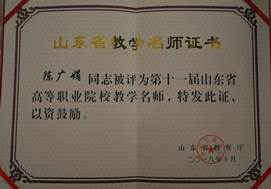 山东省教学名师证书
陈广娟 同志被评为第十一届山东省
高等职业院校教学名师，特发此证，
以资鼓励。
山东省教育厅
二〇一八年十月